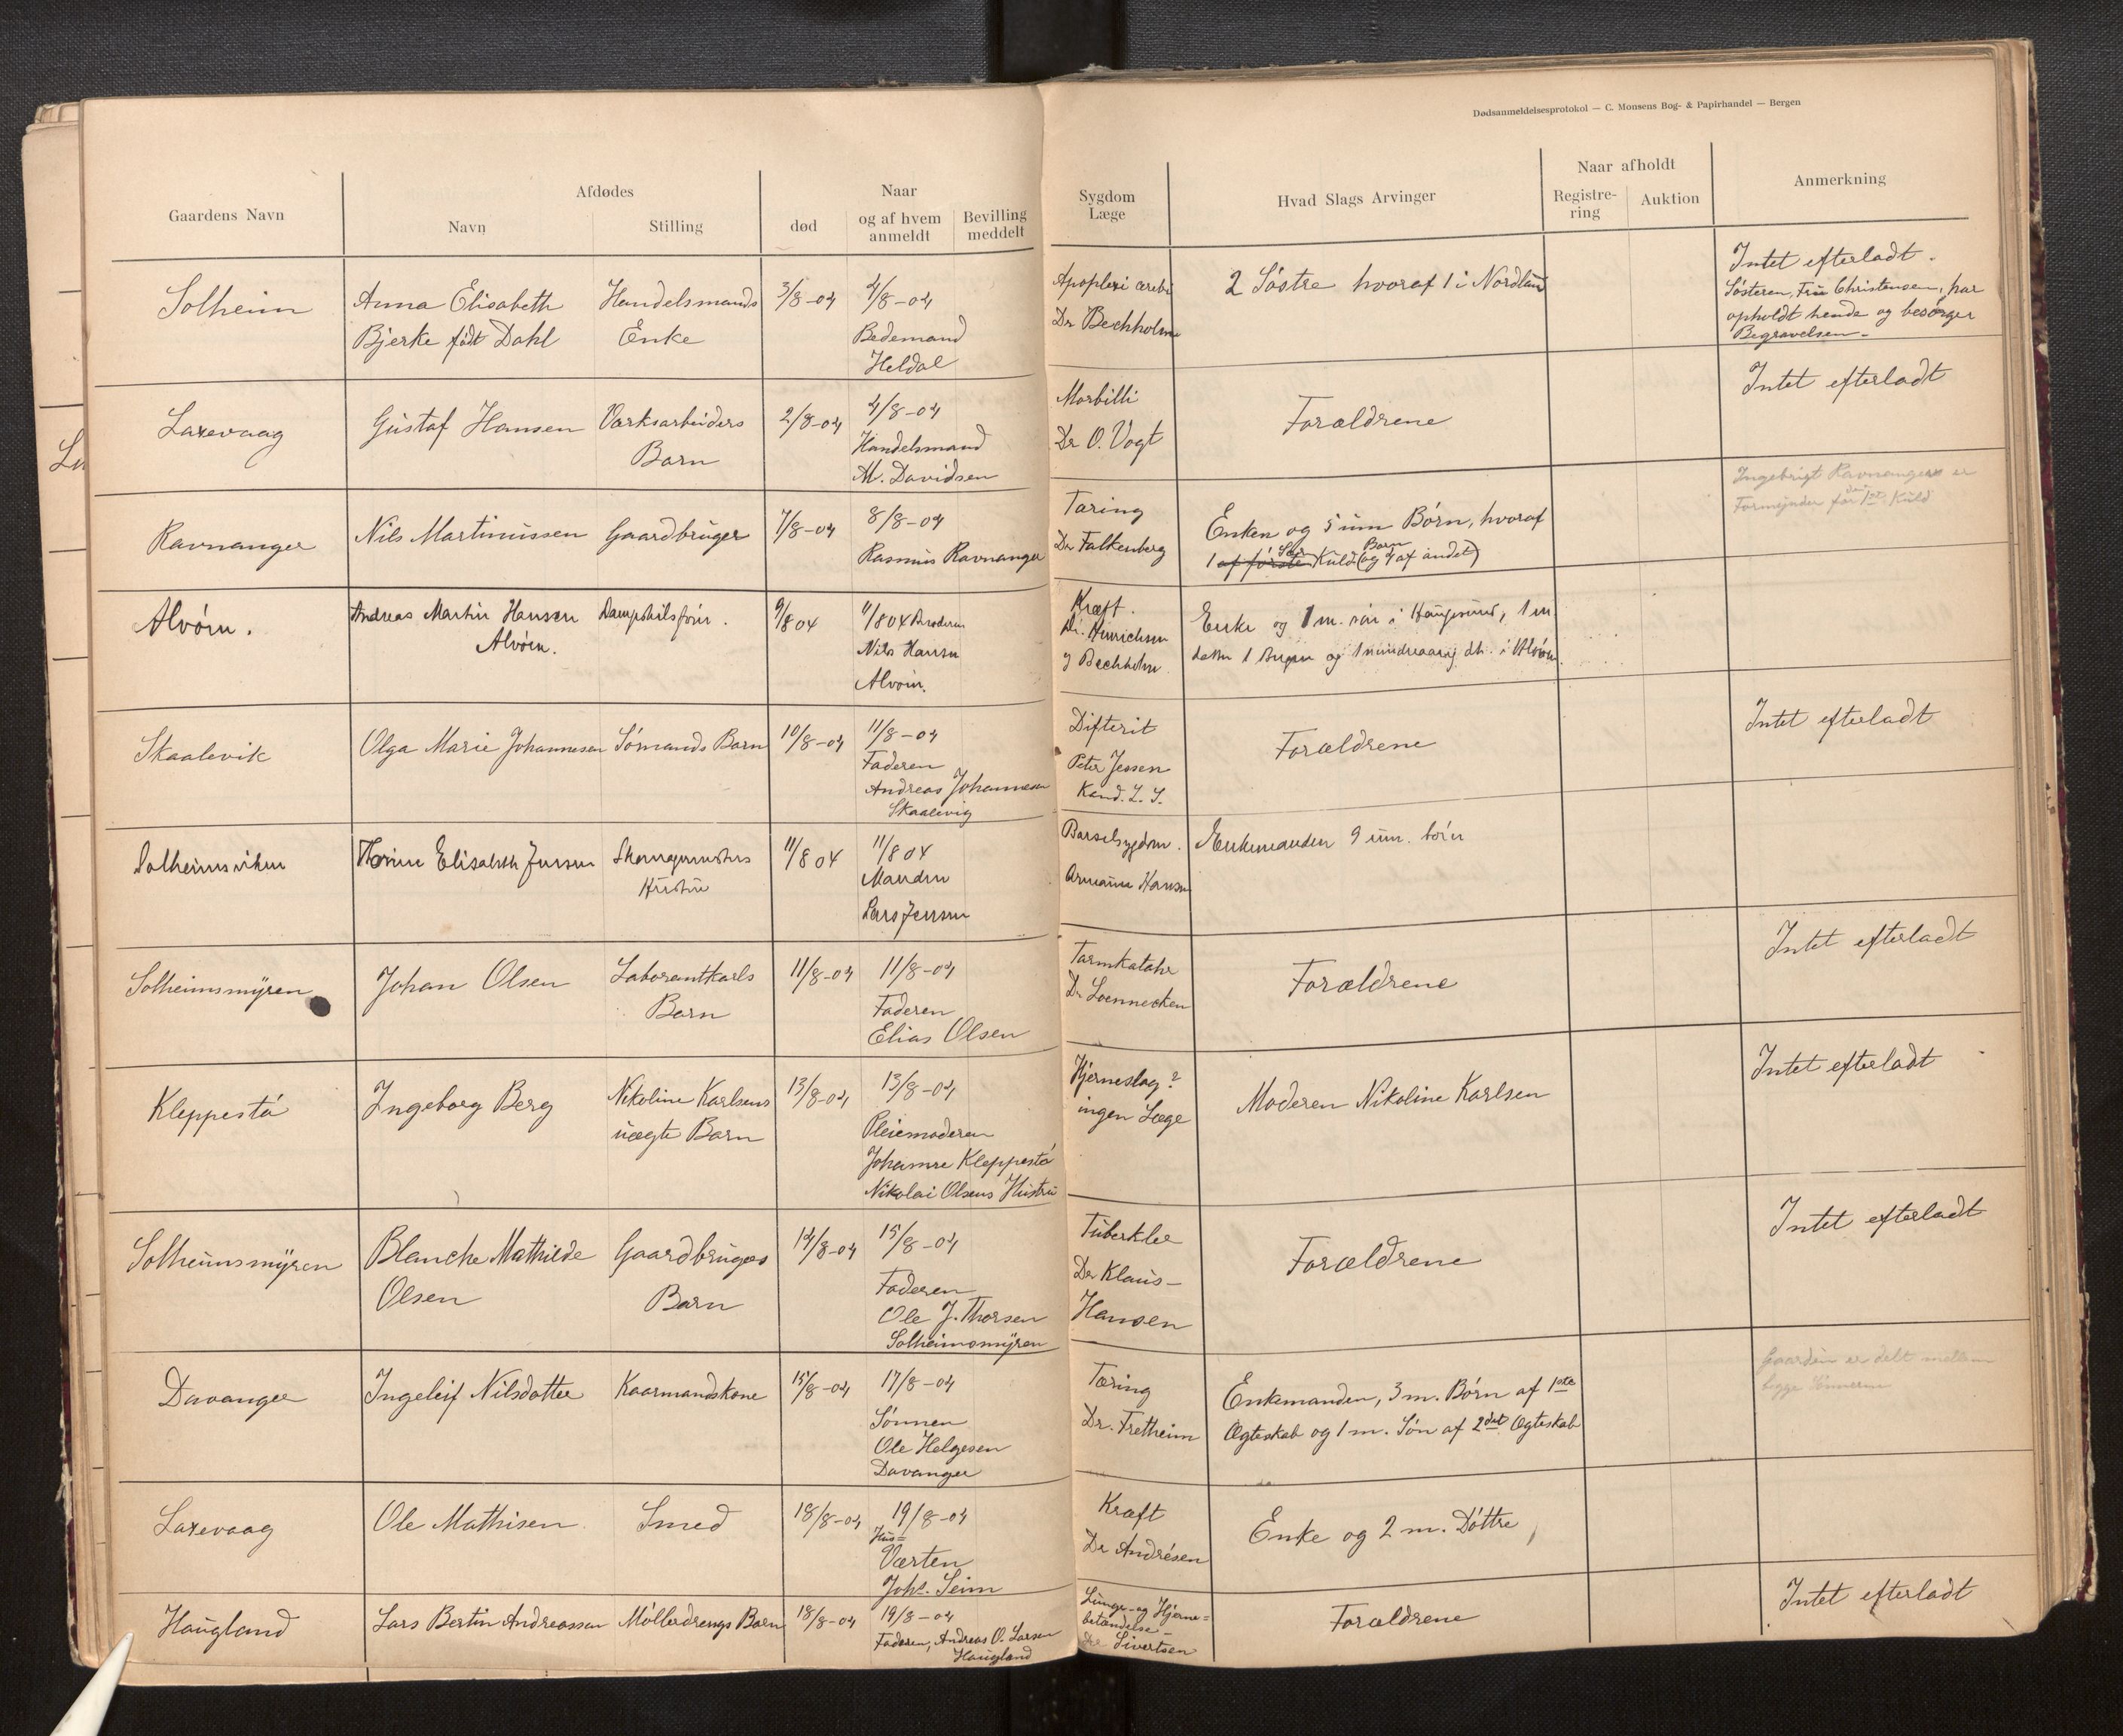 Dødsanmeldelsesprotokol — C. Monsens Bog- & Papirhandel — Bergen
Gaardens Navn
Afdødes
Navn
Stilling
død
Naar
og af hvem
anmeldt
Bevilling
meddelt
Sygdom
Læge
Hvad Slags Arvinger
Naar afholdt
Registre-
ring
Auktion
Anmerkning
Solheim
Anna Elisabeth
Bjerke født Dahl
Handelsmands
Enke
3/8-04
4/8-04
Bedemand
Heldal
Apoplexi cerebri
Dr Bechholm
2 Søstre hvoraf 1 i Nordland
Intet efterladt.
Søsteren, Fru Christensen, har
opholdt hende og besørger
Begravelsen
Laxevaag
Gustaf Hansen
Værksarbeiders
Barn
2/8-04
4/8-04
Handelsmand
M. Davidsen
Morbilli
Dr O. Vogt
Forældrene
Intet efterladt
Ravnanger
Nils Martinussen
Gaardbruger
7/8-04
8/8-04
Rasmus Ravnanger
Tæring
Dr Falkenberg
Enken og 5 um Børn, hvoraf
1 af første Kuld (og 4 af andet)
Barn
Ingebrigt Ravnanger er
Formynder for 1ste Kuld
Alvøen.
Andreas Martin Hansen
Alvøen.
Dampskibsfører.
9/8 04
11/8 04 Broderen
Nils Hansen
Alvøen.
Kræft.
Dr. Hinrichsen
og Bechholm
Enke og 1 m. søn i Haugesund, 1 m
datter i Bergen og 1 mindreaarig dtr. i Alvøen.
Skaalevik
Olga Marie Johannesen
Sømands Barn
10/8-04
11/8-04
Faderen
Andreas Johannesen
Skaalevig
Difterit
Peter Jessen
Kand.
Forældrene
Intet efterladt
Solheimsviken
Elisabeth Jensen
Hustru
11/8 04
11/8 04
Manden
Lars Jensen
Barselsygdom.
Hansen
Enkemanden 9 um. børn
Solheimsmyren
Johan Olsen
Laborantkarls
Barn
11/8-04
11/8-04
Faderen
Elias Olsen
Tarmkatahr
Dr Loennecken
Forældrene
Intet efterladt
Kleppestø
Ingeborg Berg
Nikoline Karlsens
uægte Barn
13/8-04
13/8-04
Pleiemoderen
Johanne Kleppestø
Nikolai Olsens Hustru
Hjerneslag?
ingen Læge
Moderen Nikoline Karlsen
Intet efterladt
Solheimsmyren
Blanche Mathilde
Olsen
Gaardbrugers
Barn
14/8-04
15/8-04
Faderen
Ole J. Thorsen
Solheimsmyren
Tuberkler
Dr Klaus-
Hansen
Forældrene
Intet efterladt
Davanger
Ingeleif Nilsdatter
Kaarmandskone
15/8-04
17/8-04
Sønnen
Ole Helgesen
Davanger
Tæring
Dr. Fretheim
Enkemanden, 3 m. Børn af 1ste
Ægteskab og 1 m. Søn af 2det Ægteskab
Gaarden er delt mellem
begge Sønnerne
Laxevaag
Ole Mathisen
Smed
18/8-04
19/8-04
Hus=
Værten
Johs. Seim
Kræft
Dr Andrésen
Enke og 2 m. Døttre
Haugland
Lars Bertin Andreassen
Møllerdrengs Barn
18/8-04
19/8-04
Faderen, Andreas O. Larsen
Haugland
Lunge- og Hjerne=
betændelse
Dr Sivertsen
Forældrene
Intet efterladt